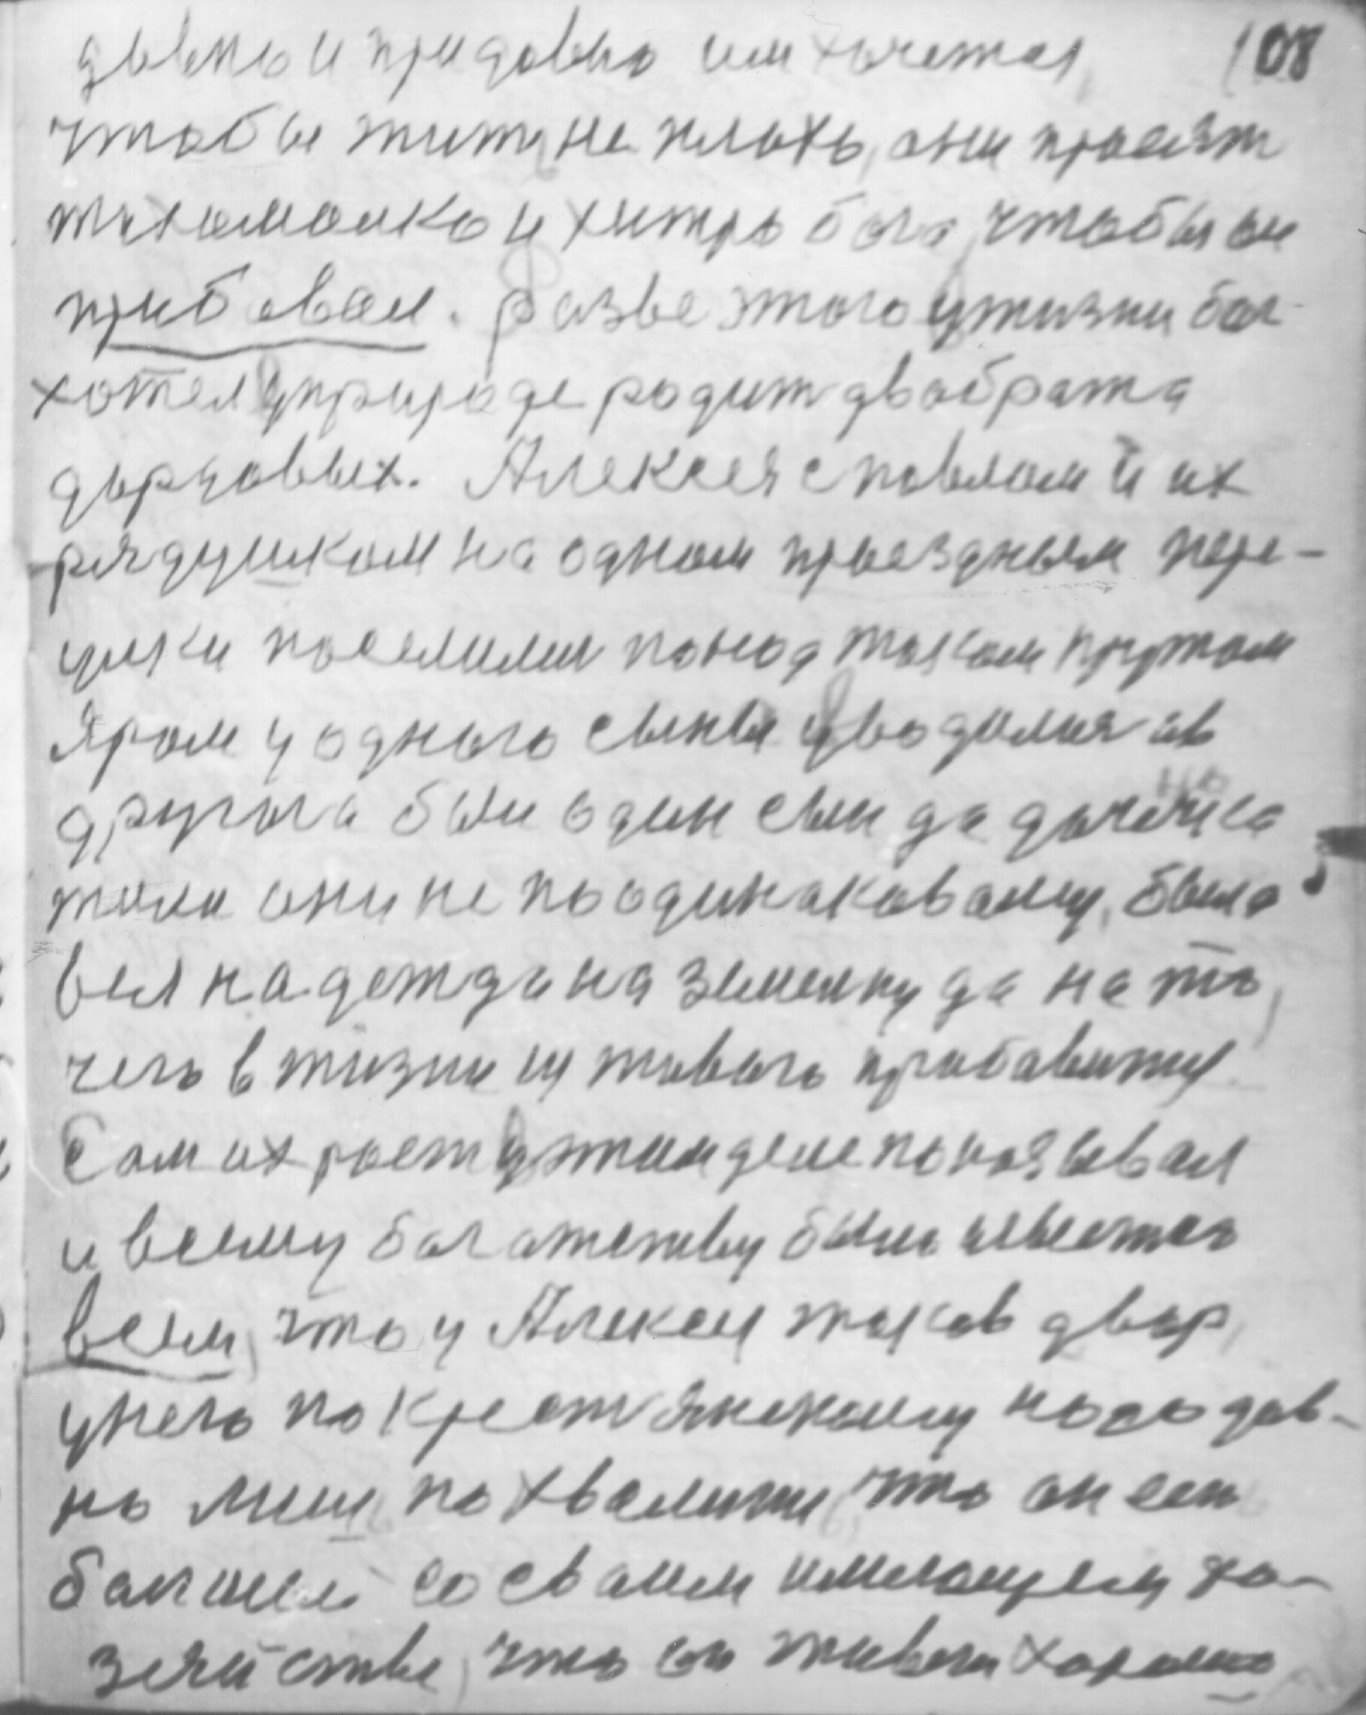 108
давно и придавно им хочется,
чтобы жить не плохо, они просят
тихомолко и хитро бога, чтобы он
прибавил. Разве этого у жизни бог
хотел у природе родит два брата
дырцовых. Алексея с павлом и их
рядушком на одном проездным пере-
улки поселили понад таком крутом
яром у одного сыны уводился ав
другога был один сын да дочечка
жили они не по одинаковаму, была
вся надежда на земельку да на то,
чего в жизни живого прибавится
Сам их рост у этим деле показывал
и всему богатству было известно
всем, что у Алексея таков двор,
унего по крестьянскому надо дав-
но миш похвалится, что он есть
богатей со своим имеющем хо-
зяйстве, что он живет хорошо